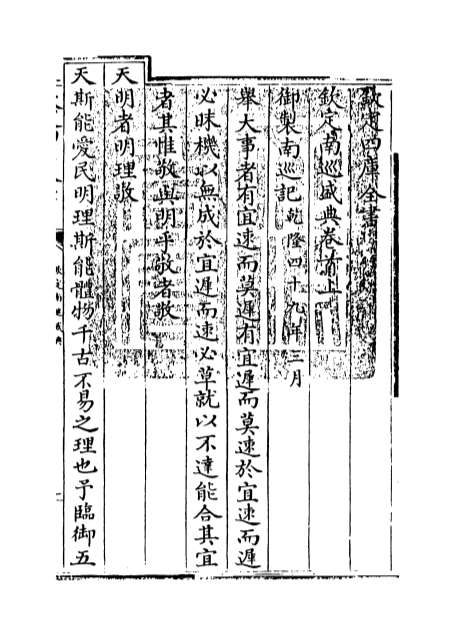 欽定四庫全書
欽定南巡盛典卷首上
御製南巡記乾隆四十九年三月
舉大事者有宜速而莫遲有宜遲而莫速於宜速而遲
必昧機以無成於宜遲而速必草就以不達能合其宜
者其惟敬與明乎敬者敬
天明者明理敬
天斯能愛民明理斯能體物千古不易之理也予臨御五